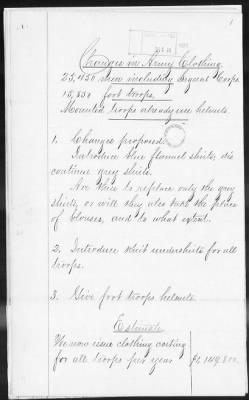 Changes in Army Clothing.
25,450 men including Signal Corps
18,850 foot troops.
Mounted troops already use helmets.
1. Changes proposed.
Introduce blue flannel shirts, dis
continue grey shirts.
Are these to replace only the grey
shirts, or will they also take the place
of blouses, and to what extent.
2. Introduce knit undershirts for all
troops.
3. Give foot troops helmets.
Estimate
We now issue clothing costing
for all troops per year